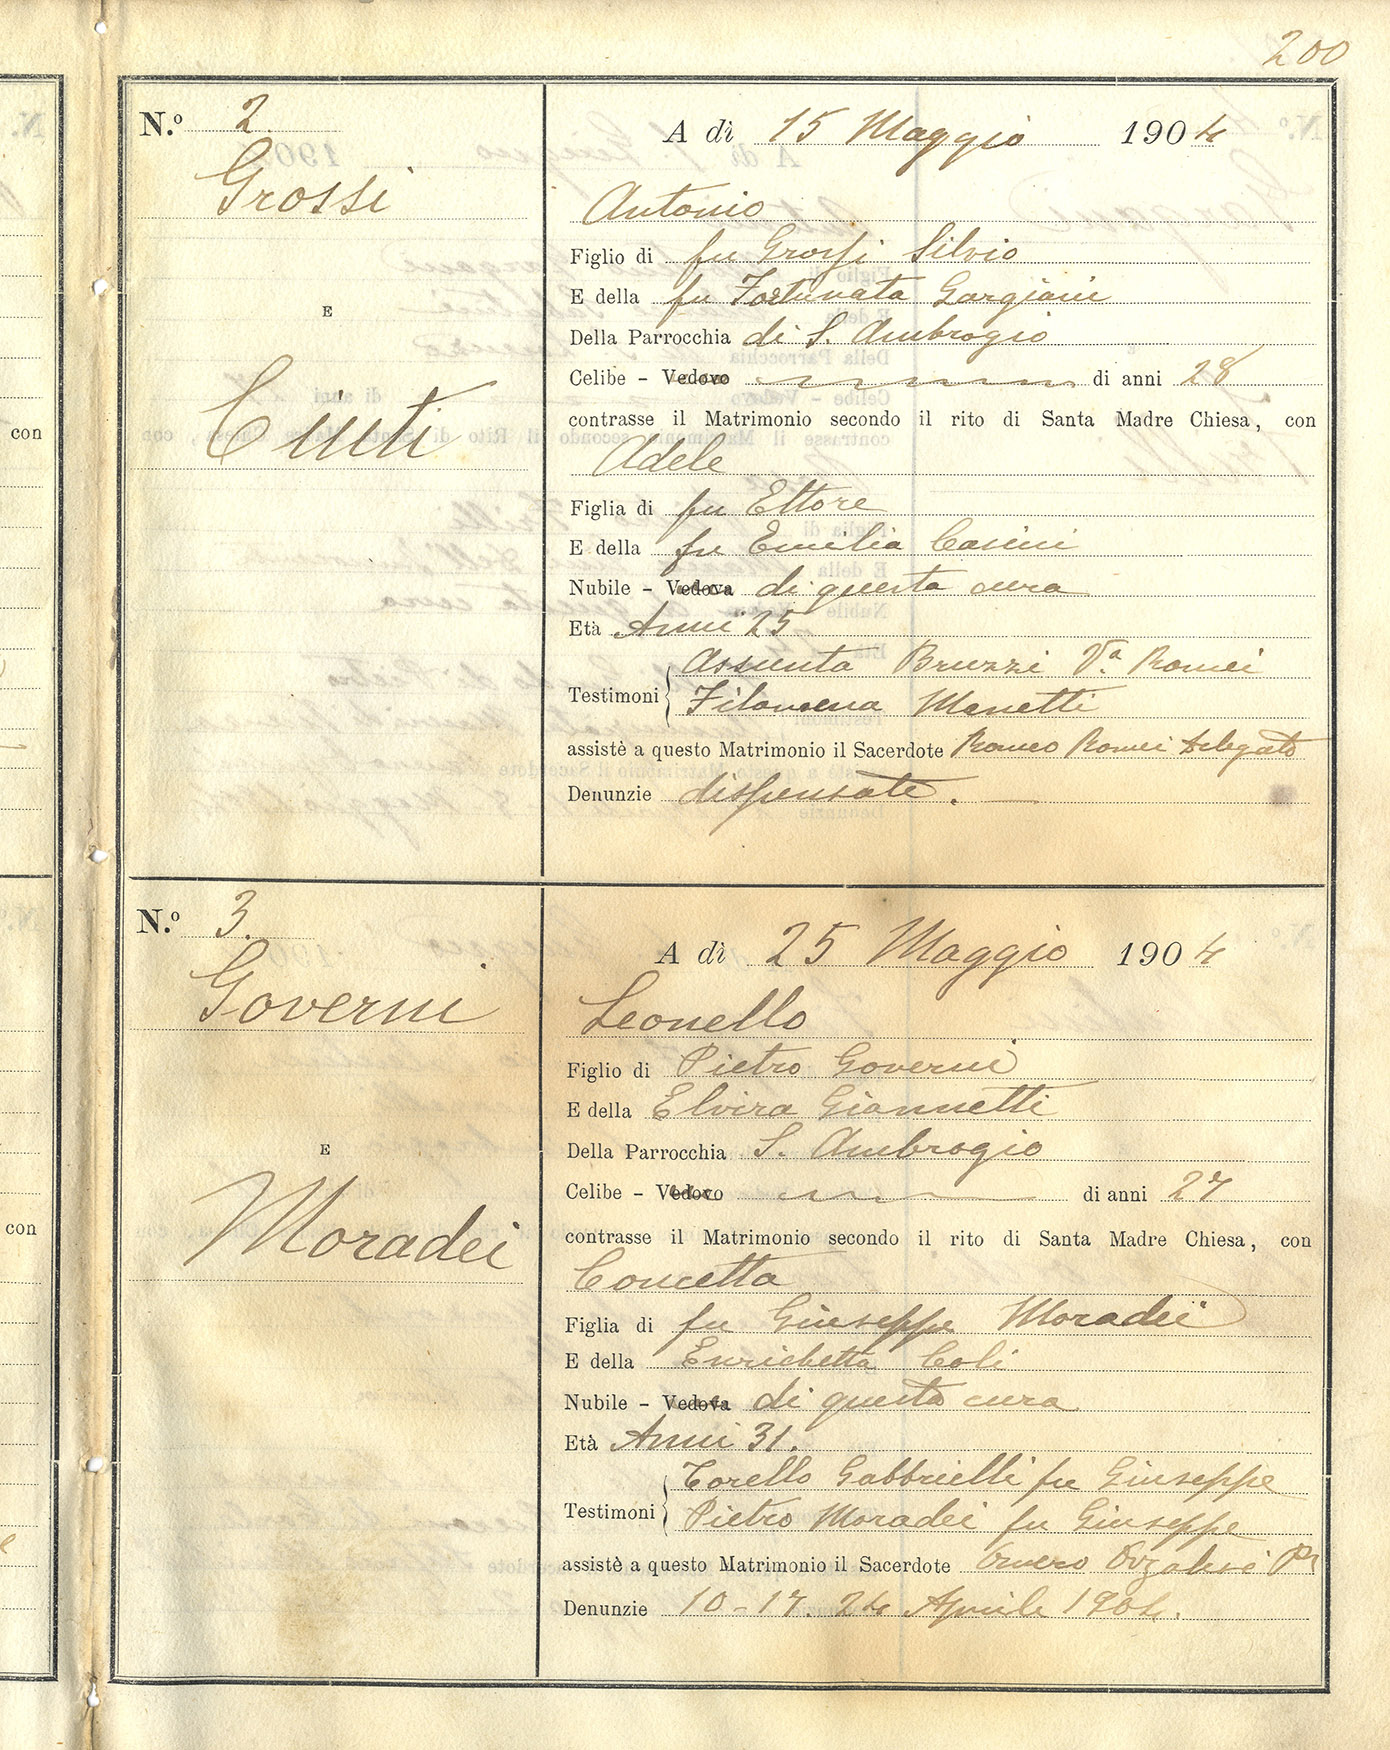 200
N.º 2.
Grossi
E
Ciuti
A dì 15 Maggio 1904
Antonio
Figlio di fu Grossi Silvio
E della fu Fortunata Gargiani
Della Parrocchia di S. Ambrogio
Celibe - Vedovo di anni 28
contrasse il Matrimonio secondo il rito di Santa Madre Chiesa, con
Adele
Figlia di fu Ettore
E della fu Emilia Casini
Nubile - Vedova di questa cura
Età Anni 25
Testimoni Assunta Bruzzi Vª. Romei
Filomena Menetti
assistè a questo Matrimonio il Sacerdote Romeo Romei delegato
Denunzie dispensate.
N.º 3.
Governi
E
Moradei
A dì 25 Maggio 1904
Leonello
Figlio di Pietro Governi
E della Elvira Giannetti
Della Parrocchia S. Ambrogio
Celibe - Vedovo di anni 27
contrasse il Matrimonio secondo il rito di Santa Madre Chiesa, con
Concetta
Figlia di fu Giuseppe Moradei
E della Enrichetta Coli
Nubile - Vedova di questa cura
Età Anni 31.
Testimoni Torello Gabbrielli fu Giuseppe
Pietro Moradei fu Giuseppe
assistè a questo Matrimonio il Sacerdote Omero
Denunzie 10 - 17. 24 Aprile 1904.
con
con